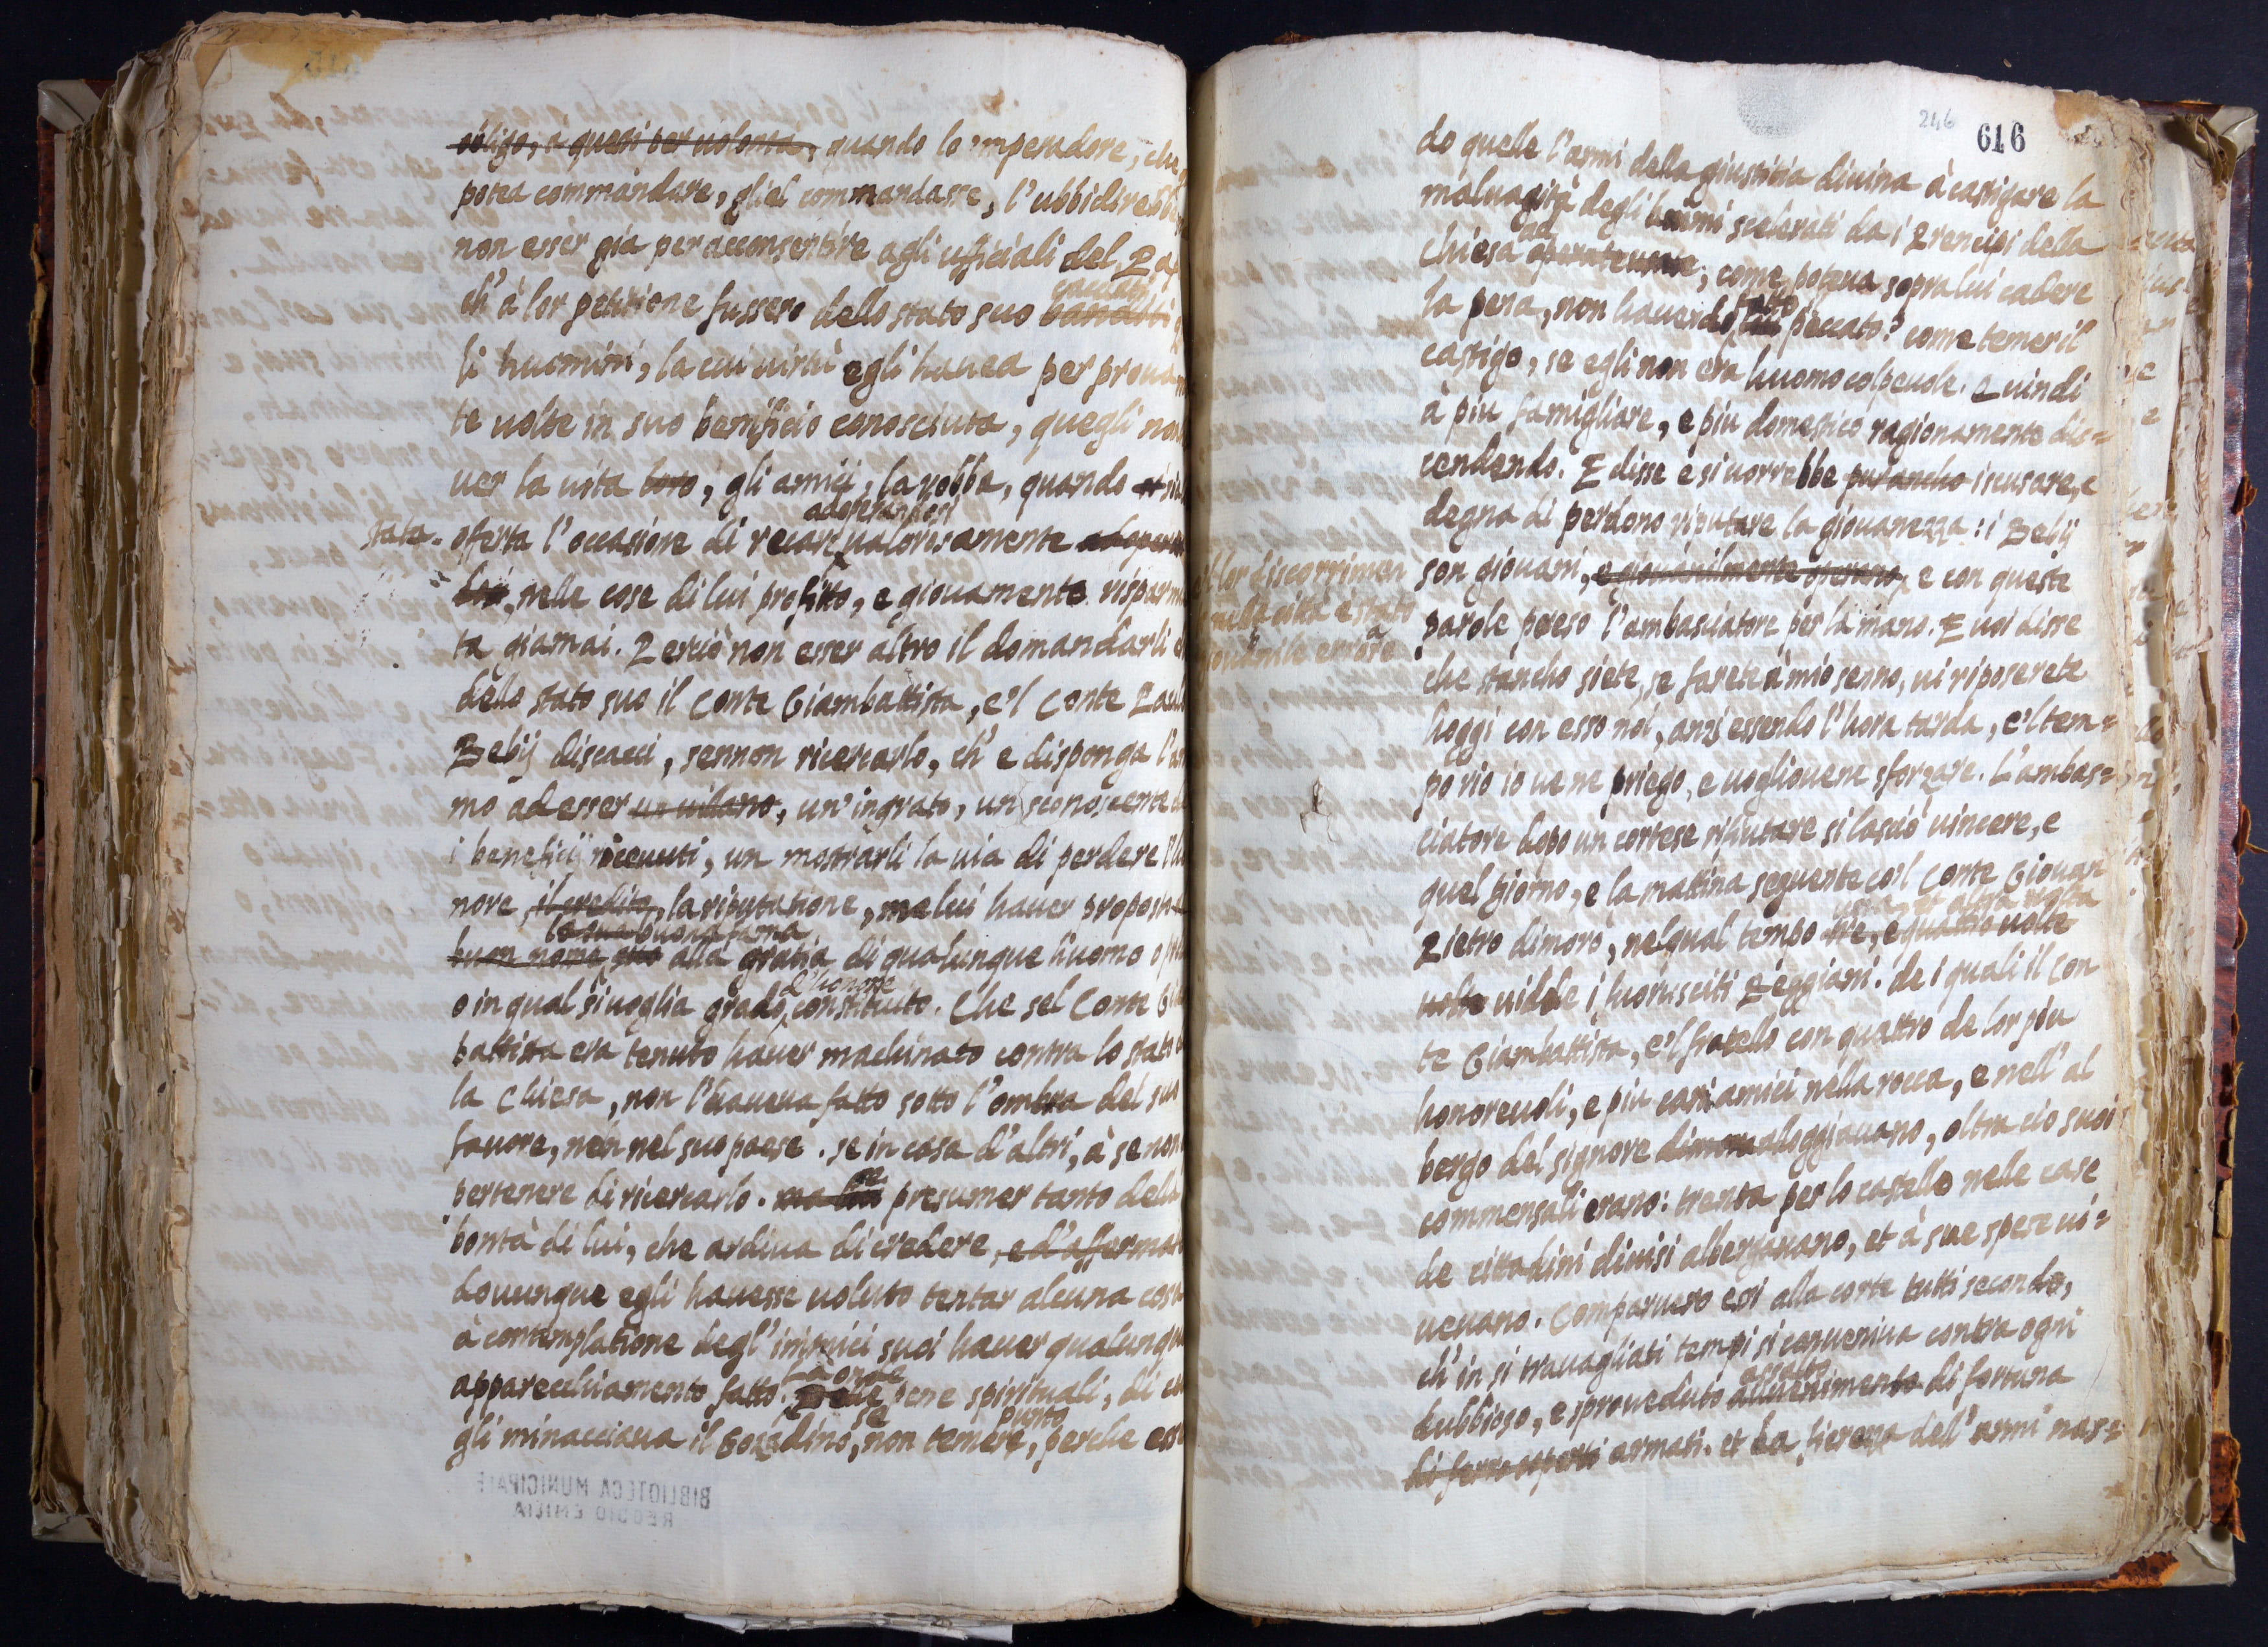 obligo, e quasi per uiolenza, quando lo 'mperadore, che
potea commandare, gliel commandasse, l'ubbidirebbe
non esser gia per acconsentire agli ufficiali del Pa
cacciati
ch' à lor petitione fussero dello stato suo banditi
li huomini, la cui uirtù egli hauea per proua
te uolte in suo beneficio conosciuta, quegli non
uer la uita loro, gli amici, la robba, quando si sia
adoperandosi
stata offerta l'occasione di recar ualorosamente
nelle cose di lui profitto, e giouamento risparmia
ta giamai. Perciò non esser altro il domandarli
dello stato suo il Conte Giambattista, e'l Conte Paulo
Bebij discacci, sennon ricercarlo, ch' e disponga l'ani
mo ad esser un uillano, un'ingrato, un sconoscente
i beneficij riceuuti, un mostrarli la uia di perdere l'ho
nore, il credito, la riputatione, ma lui hauer proposto
la sua buona fama
buon nome suo alla gratia di qualunque huomo
d'honore
o in qual si uoglia grado constituto. Che sel Conte Gia
battista era tenuto hauer machinato contra lo stato
la Chiesa, non l'haueua fatto sotto l'ombra del suo
fauore, nèn nel suo paese. se in casa d'altri, à se non
pertenere di ricercarlo. ma presumer tanto della
bontà di lui, che ardiua di credere, e d'affermar
douunque egli hauesse uoluto tentar alcuna cosa
à contemplatione degl'inimici suoi hauer qualunque
apparecchiamento fatto. Delle pene spirituali, di cu
se punto
gli minacciaua il Gozadino, non temere, perche ess
BIBLIOTECA MUNICIPALE
REGGIO EMILIA
246
616
do quelle l'armi della giustitia diuina à castigare la
maluagità degli huomini scelerati da i Prencipi della
Chiesa, come poteua sopra lui cadere
fatto
la pena, non hauendo peccato? come temer il
castigo, se egli non era huomo colpeuole. Quindi
à piu famigliare, e piu domestico ragionamento dis=
cendendo. E disse e si uorrebbe pur ancho iscusare, e
degna di perdono riputare la giouanezza: i Bebij
son giouani, e giouanilmente operano, e con queste
il lor discorrimen
nella città è stato
giouanile errore
parole preso l'ambasciatore per la mano. E uoi disse
che stancho siete, se farete à mio senno, ui riposerete
hoggi con esso noi, anzi essendo l'hora tarda, e'l tem=
po rio io ue ne priego, e uogliouene sforzare. L'ambas=
ciatore dopo un cortese rifiutare si lasciò uincere, e
quel giorno, e la mattina seguente co'l Conte Giouan
una, et altra uolta
Pietro dimorò, nel qual tempo tre, e quattro uolte
uolte uidde i fuorusciti Reggiani. de i quali il Con
te Giambattista, e'l fratello con quattro de lor piu
honoreuoli, e piu cari amici nella rocca, e nell'al
bergo del signore alloggiauano, oltra ciò suoi
commensali erano: trenta per lo castello nelle case
de cittadini diuisi albergauano, et à sue spese ui=
ueuano. Comparuero essi alla corte tutti secondo,
ch' in si trauagliati tempi si conueniua contra ogni
assalto
dubbioso, e sproueduto auuenimento di fortuna
di ferro coperti armati. et la fierezza dell'armi nas=